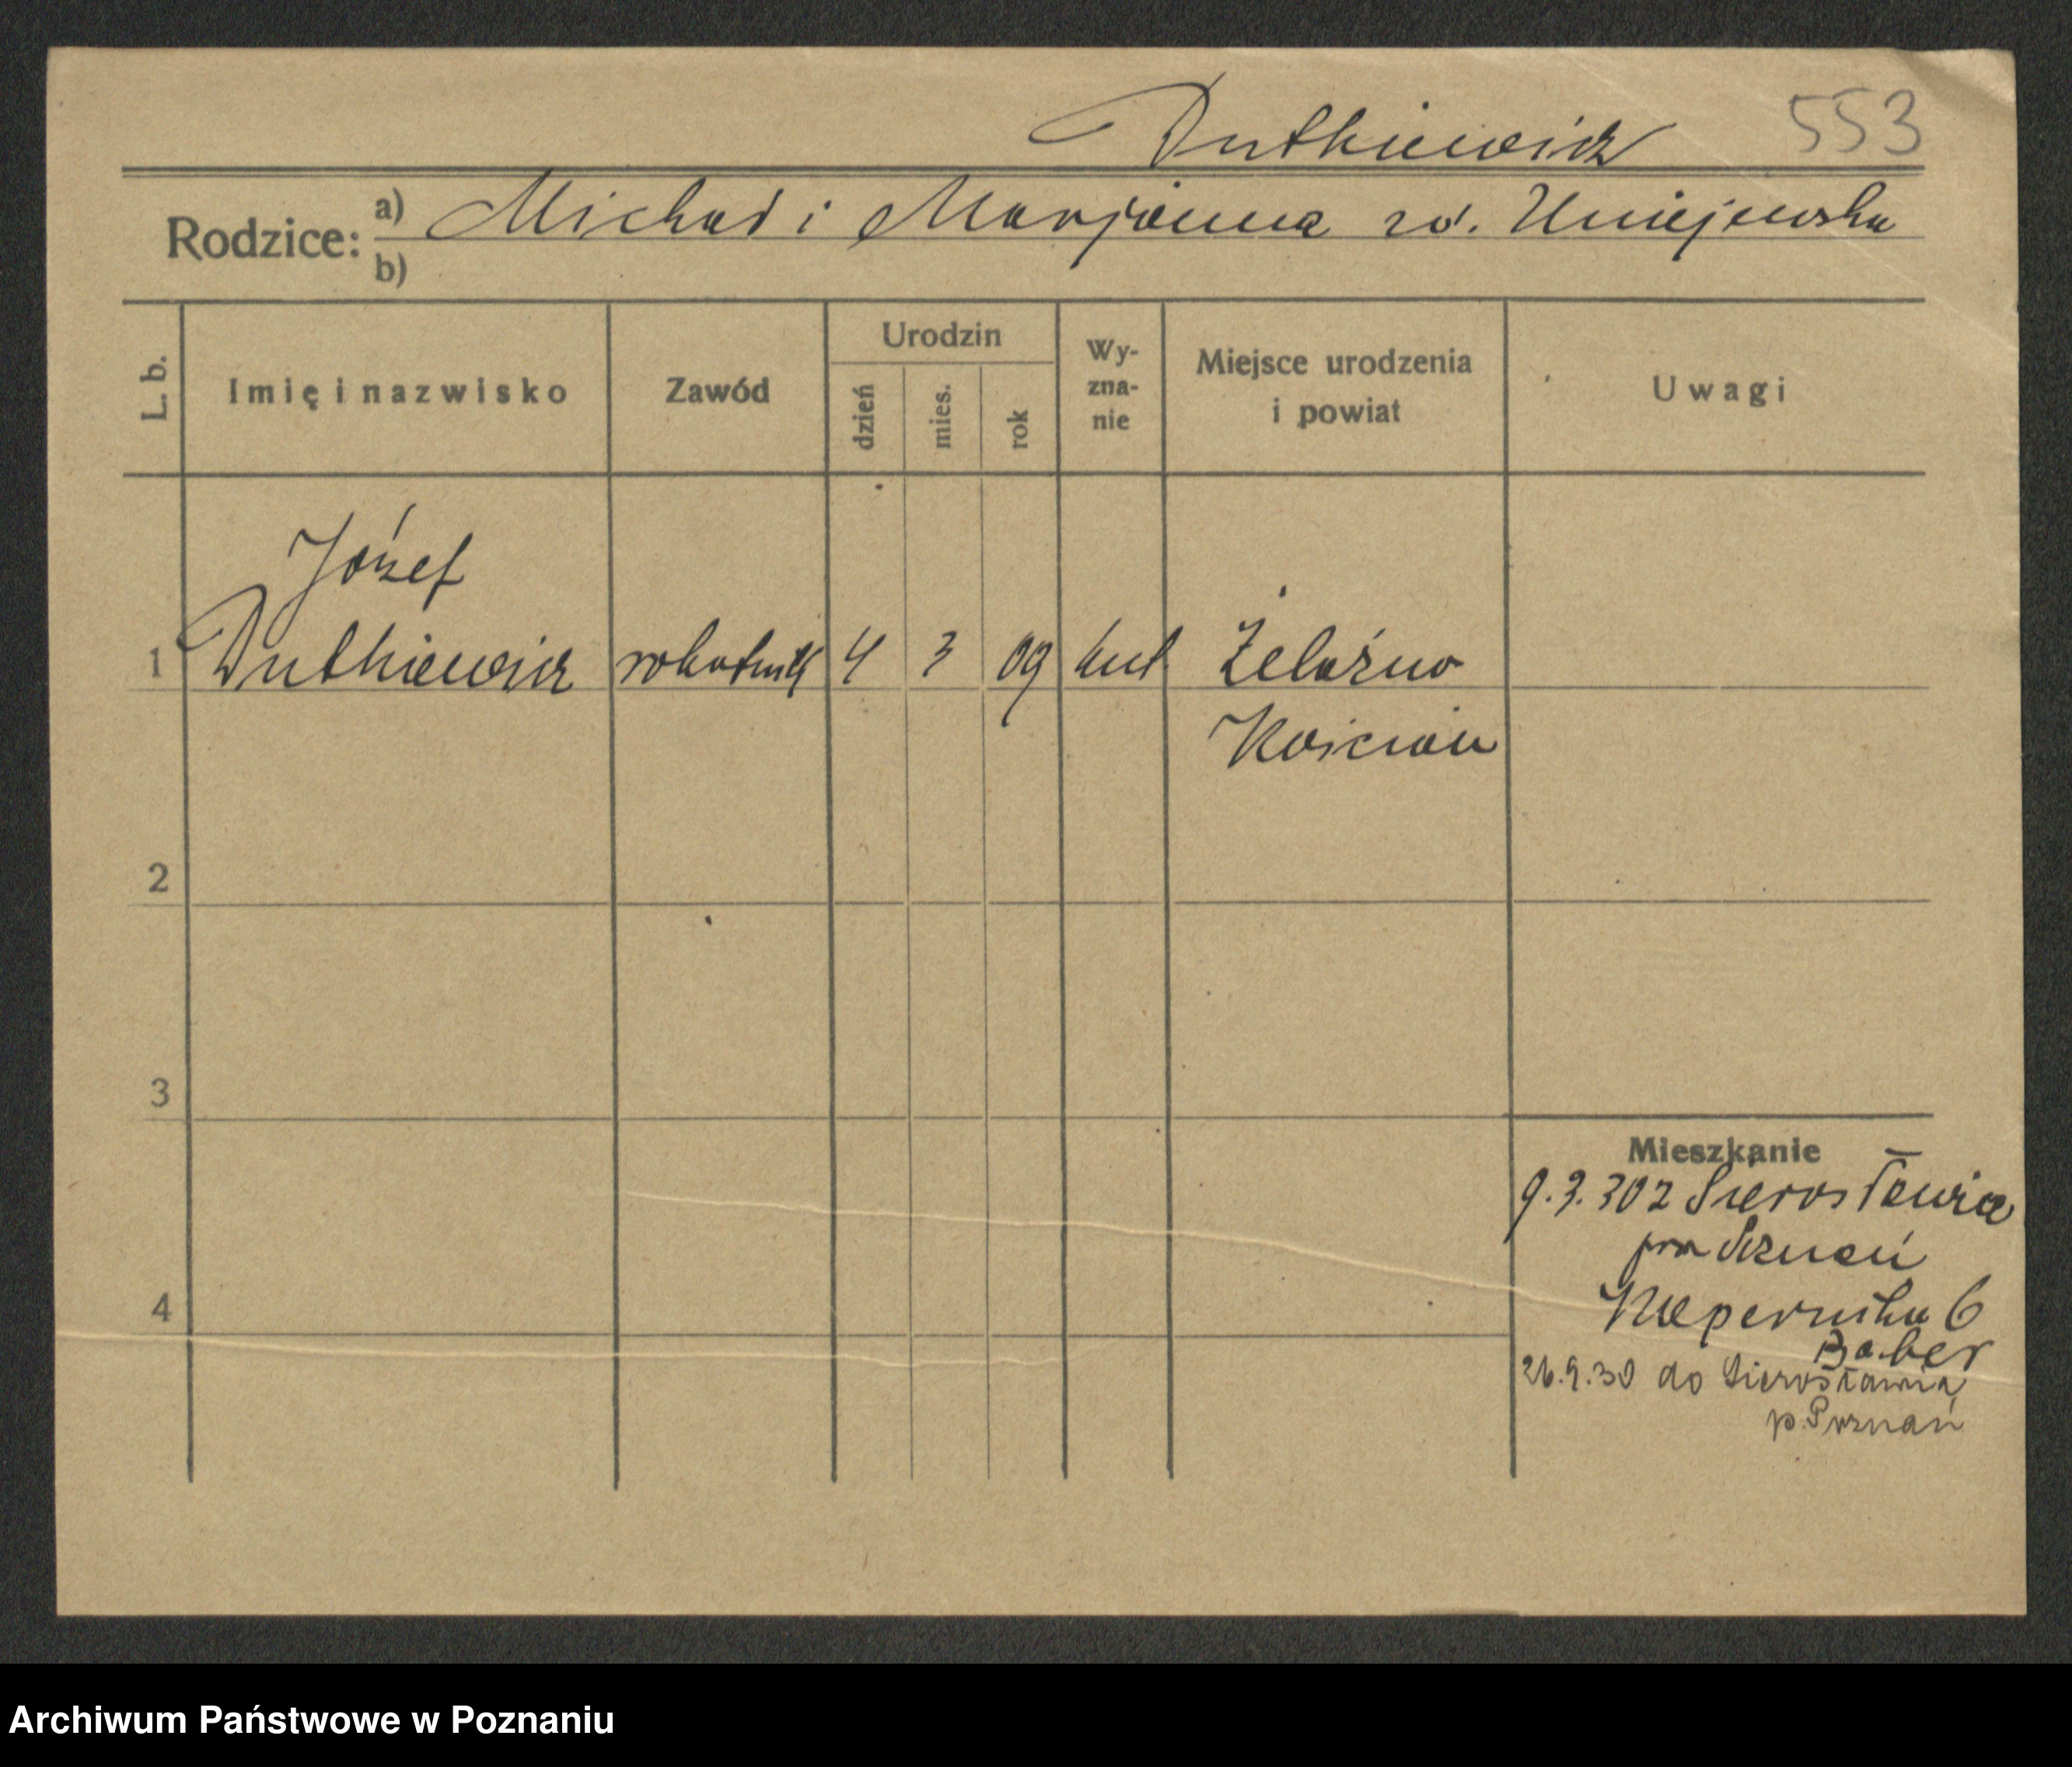 Dutkiewicz 553
Rodzice: a) Michał i Marjanna zd. Uniejewska
b)
L. b. Imię i nazwisko Zawód Urodzin dzień mies. rok Wyznanie Miejsce urodzenia i powiat Uwagi
Józef
1 Dutkiewicz robotnik 4 3 09 kat. Żelazno
Kościan
2
3
Mieszkanie
9.3.30 z Sierosławice
pow Poznań
4 Kopernika 6
Baber
26.9.30 do Sierosławia
p. Poznań
Archiwum Państwowe w Poznaniu